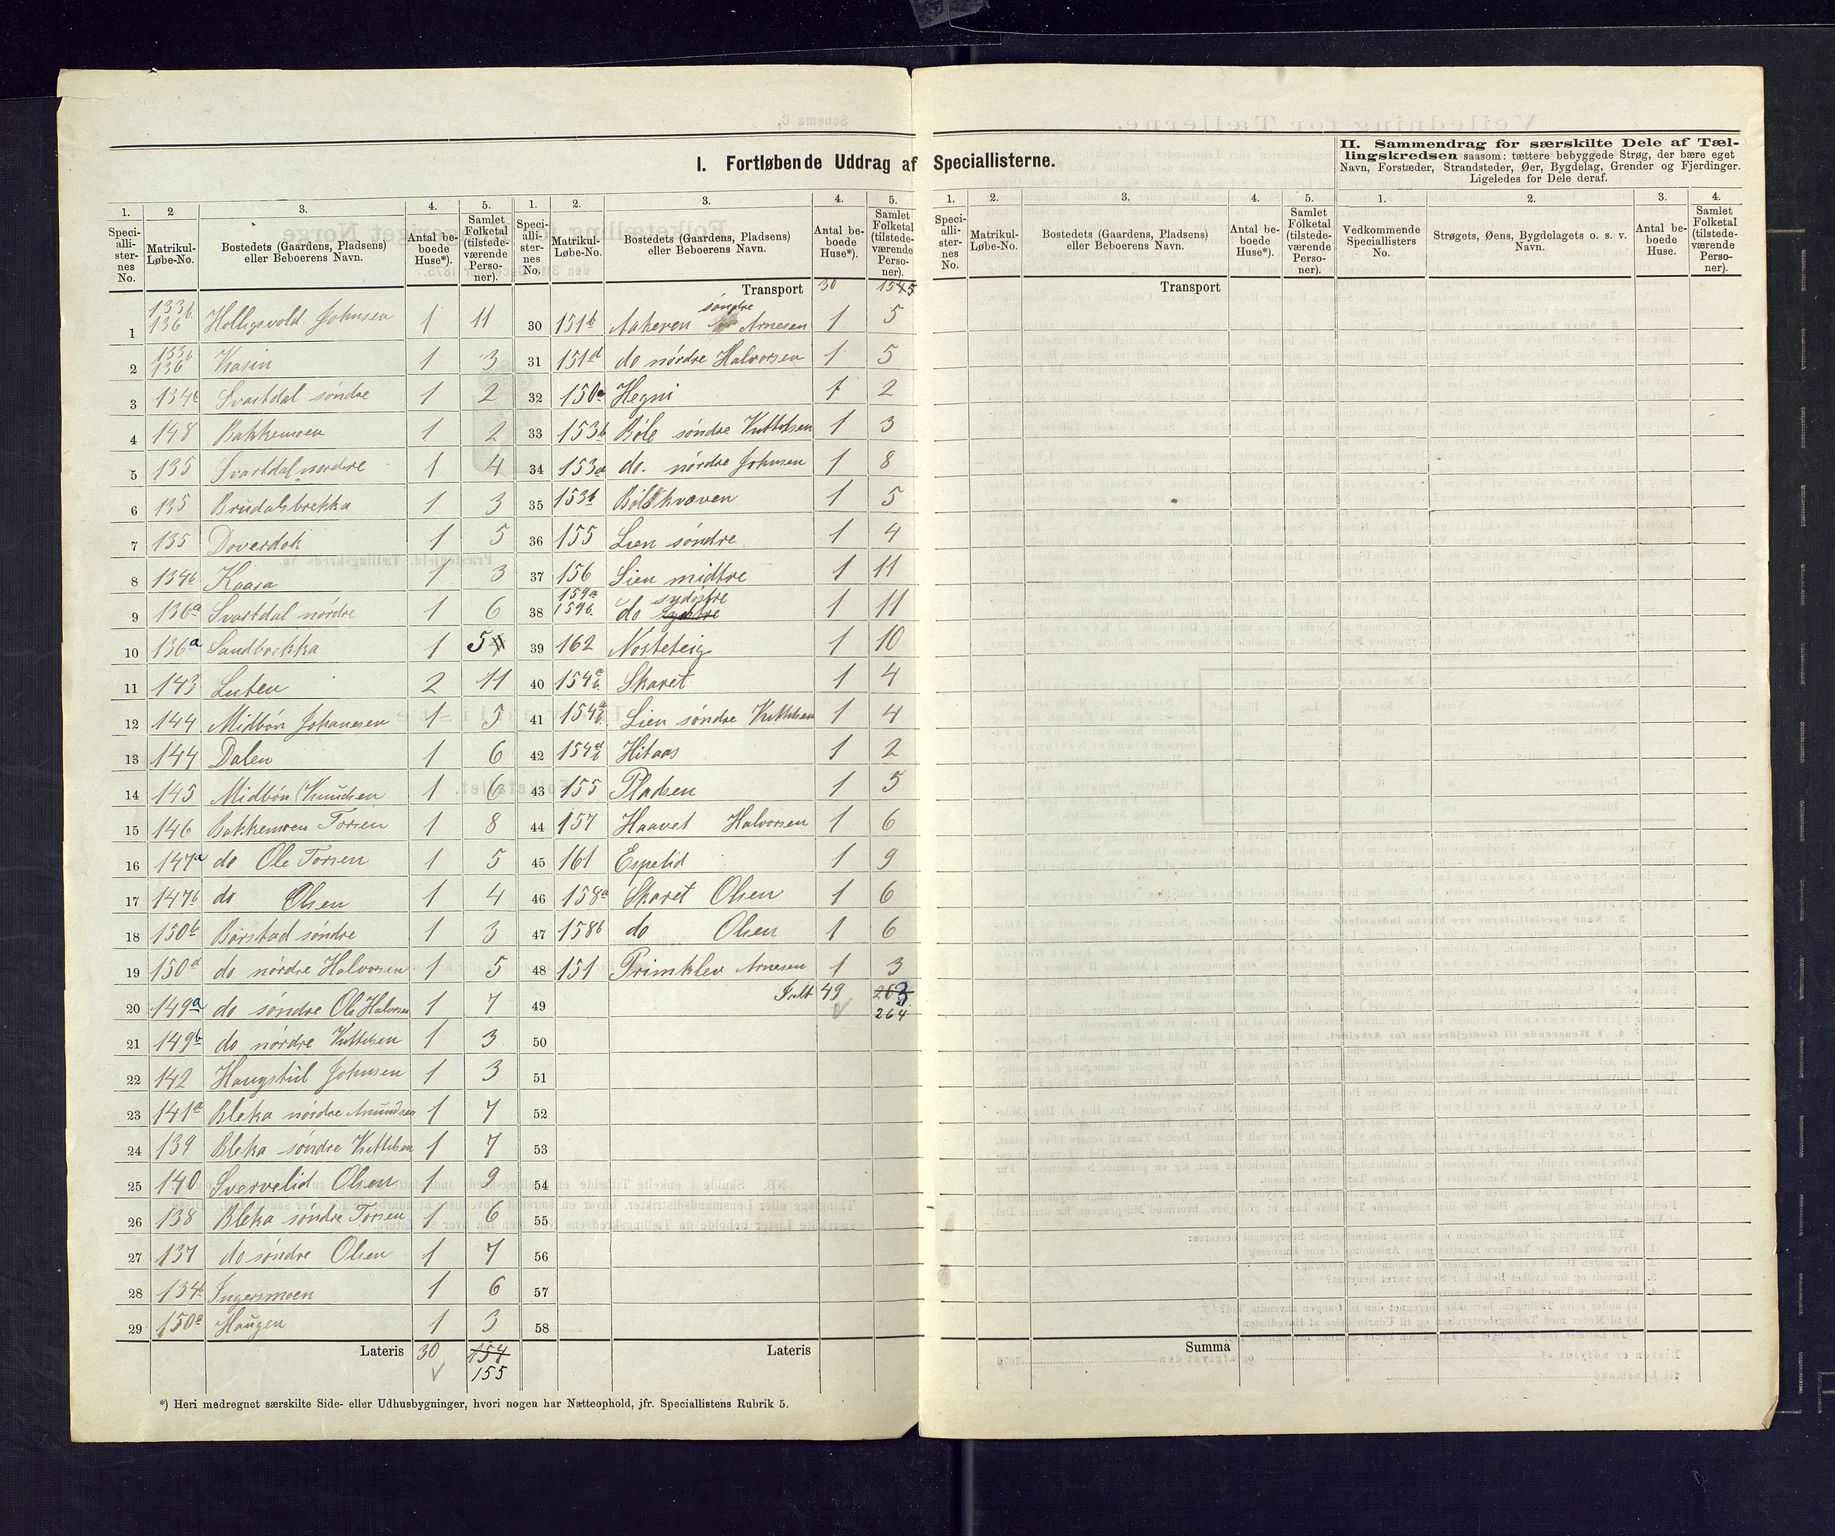 I. Fortløbende Uddrag af Speciallisterne.
II. Sammendrag for særskilte Dele af Tællingskredsen saasom: tættere bebyggede Strøg, der bære eget
Navn, Forstæder, Strandsteder, Øer, Bygdelag, Grender og Fjerdinger.
Ligeledes for Dele deraf.
1. 2 3. 4. 5. 1. 2. 3. 4. 5. 1. 2. 3. 4. 5. 1. 2. 3. 4.
Speciallisternes No. Matrikul-Løbe-No. Bostedets (Gaardens, Pladsens) eller Beboerens Navn. Antal beboede Huse*). Samlet Folketal (tilstedeværende Personer).
Speciallisternes No. Matrikul-Løbe-No. Bostedets (Gaardens, Pladsens) eller Beboerens Navn. Antal beboede Huse*). Samlet Folketal (tilstedeværende Personer).
Speciallisternes No. Matrikul-Løbe-No. Bostedets (Gaardens, Pladsens) eller Beboerens Navn. Antal beboede Huse*). Samlet Folketal (tilstedeværende Personer).
Vedkommende Speciallisters No. Strøgets, Øens, Bygdelagets o. s. v. Navn. Antal beboede Huse. Samlet Folketal (tilstedeværende Personer).
1 133b 136 Holligsvold Johnsen 1 11
2 133b 136 Kasin 1 3
3 134b Svartdal søndre 1 2
4 148 Bakkemoen 1 2
5 135 Svartdal nordre 1 4
6 135 Brudalsbrekka 1 3
7 135 Doverdok 1 5
8 134b Kaasa 1 3
9 136a Svartdal nørdre 1 6
10 136a Sandbrekka 1 5
11 143 Luten 2 11
12 144 Midbøn Johanesen 1 5
13 144 Dalen 1 6
14 145 Midbøn Knudsen 1 6
15 146 Bakkemoen Torsen 1 8
16 147a do Ole Torsen 1 5
17 147b do Olsen 1 4
18 150b Børstad søndre 1 3
19 150d do nørdre Halvorsen 1 5
20 149a do søndre Ole Halvorsen 1 7
21 149b do nørdre Kittelsen 1 3
22 142 Haugstul Johnsen 1 3
23 141a Bleka nørdre Amundsen 1 7
24 139 Bleka søndre Kittelsen 1 7
25 140 Svervelid Olsen 1 9
26 138 Bleka søndre Torsen 1 6
27 137 do søndre Olsen 1 7
28 134b Ingersmoen 1 6
29 150a Haugen 1 3
Lateris 30 154
155
Transport 30 1545
30 151b Aakeren søndre Arnesen 1 5
31 151d do nørdre Halvorsen 1 5
32 150a Hegni 1 2
33 153b Bøle søndre Kittelsen 1 3
34 153a do. nørdre Johnsen 1 8
35 153b Bølekvæven 1 5
36 155 Lien søndre 1 4
37 156 Lien midtre 1 11
38 159a 159b. do sydøstre 1 11
39 162 Nosteteig 1 10
40 154a b. Skaret 1 4
41 154a b. Lien søndre Kittelsen 1 4
42 154a b Hitaas 1 2
43 155 Pladsen 1 5
44 157 Haavet Halvorsen 1 6
45 161 Espelid 1 9
46 158a Skaret Olsen 1 6
47 158b do Olsen 1 6
48 151 Primklev Arnesen 1 3
49 Ialt 49 263
264
50
51
52
53
54
55
56
57
58
Lateris
Transport
Summa
*) Heri medregnet særskilte Side- eller Udhusbygninger, hvori nogen har Natteophold, jfr. Speciallistens Rubrik 5.